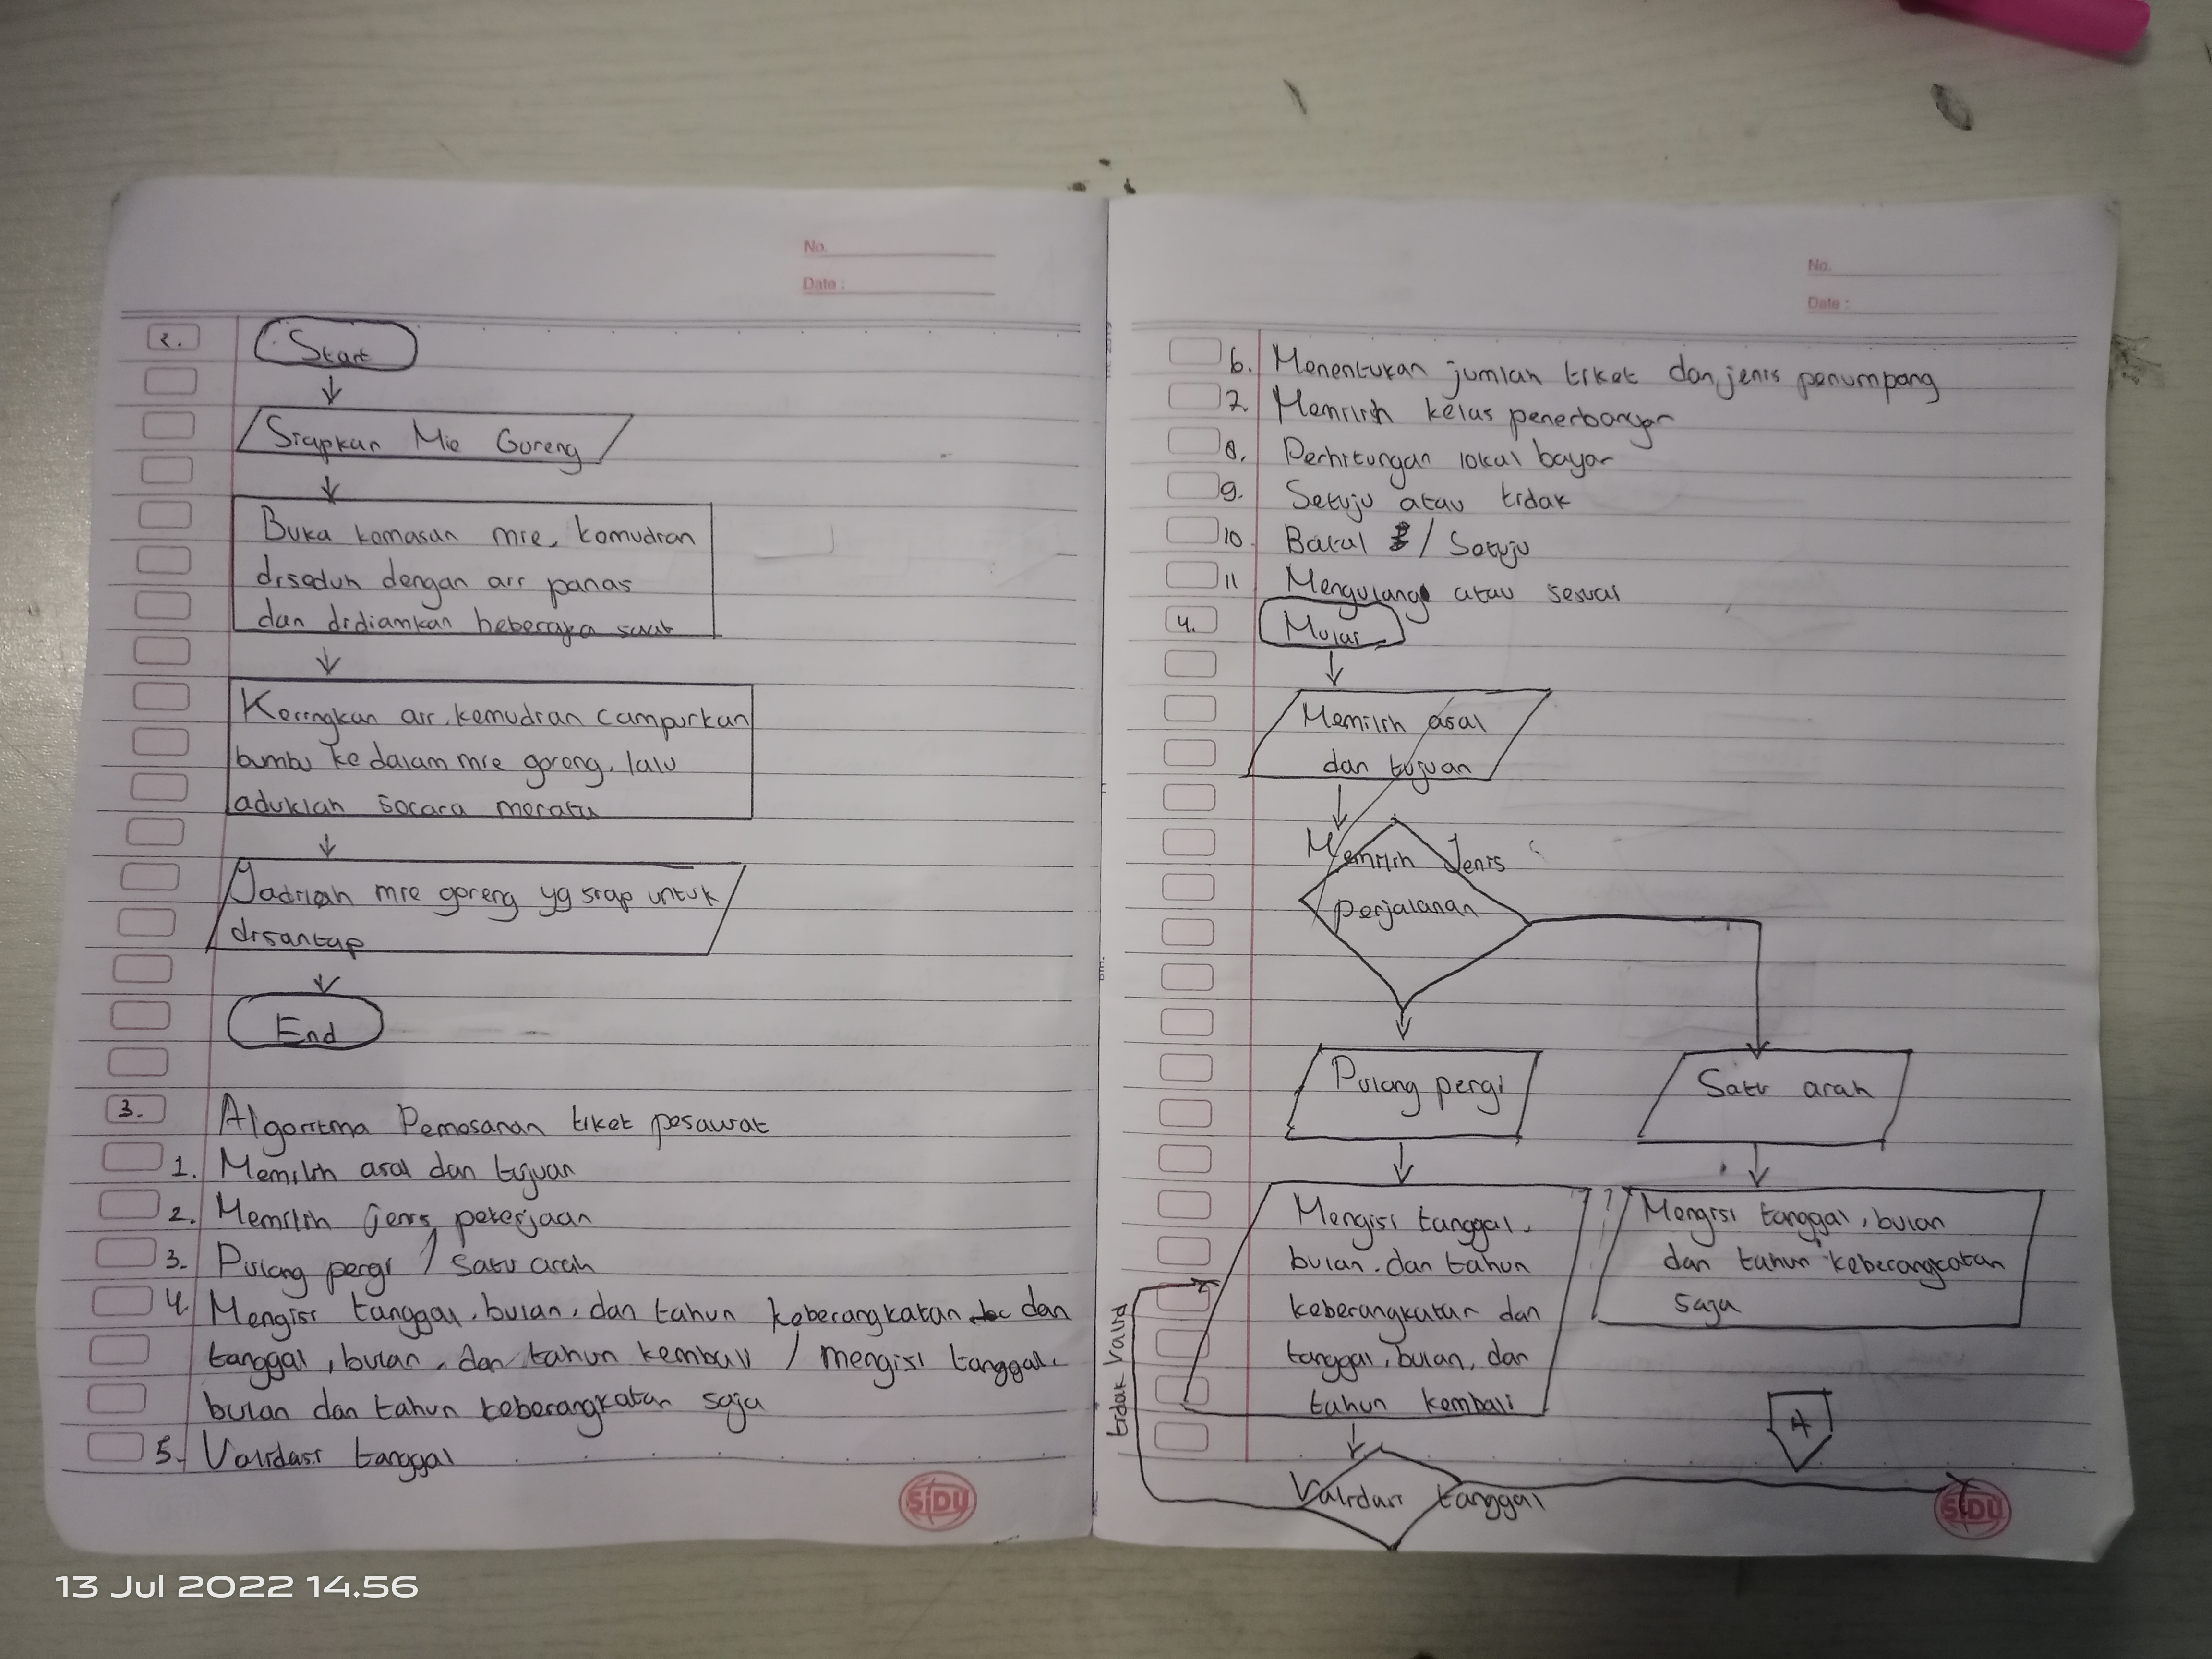 No.
Date :
2.
Start
Siapkan Mie Goreng
Buka komasan mie, komudian
diseduh dengan air panas
dan didiamkan beberapa saat
Keringkan air, kemudian campurkan
bumbu ke dalam mie goreng, lalu
aduklah socara moratu
Jadilah mie goreng yg siap untuk
disantap
End
3.
Algoritma Pemosanan tiket posawat
1. Memilih asal dan tujuan
2. Memilih jenis pekerjaan
3. Pulang pergi / satu arah
4. Mengisi tanggal, bulan, dan tahun keberangkatan dan
tanggal, bulan, dan tahun kembali / mengisi tanggal,
bulan dan tahun keberangkatan saja
5. Validasi tanggal
SiDU
No.
Date :
6. Menentukan jumlah tiket dan jenis penumpang
7. Memilih kelas penerbangan
8. Perhitungan lokal bayar
9. Setuju atau tidak
10. Batal / Sotuju
11 Mengulang atau sesuai
4.
Mulai
Memilih asal
dan tujuan
Memilih Jenis
perjalanan
Pulang pergi
Satu arah
Mengisi tanggal,
bulan, dan tahun
keberangkatan dan
tanggal, bulan, dan
tahun kembali
Mengisi tanggal, bulan
dan tahun keberangkatan
saja
tidak valid
A
Validasi tanggal
SiDU
13 Jul 2022 14.56